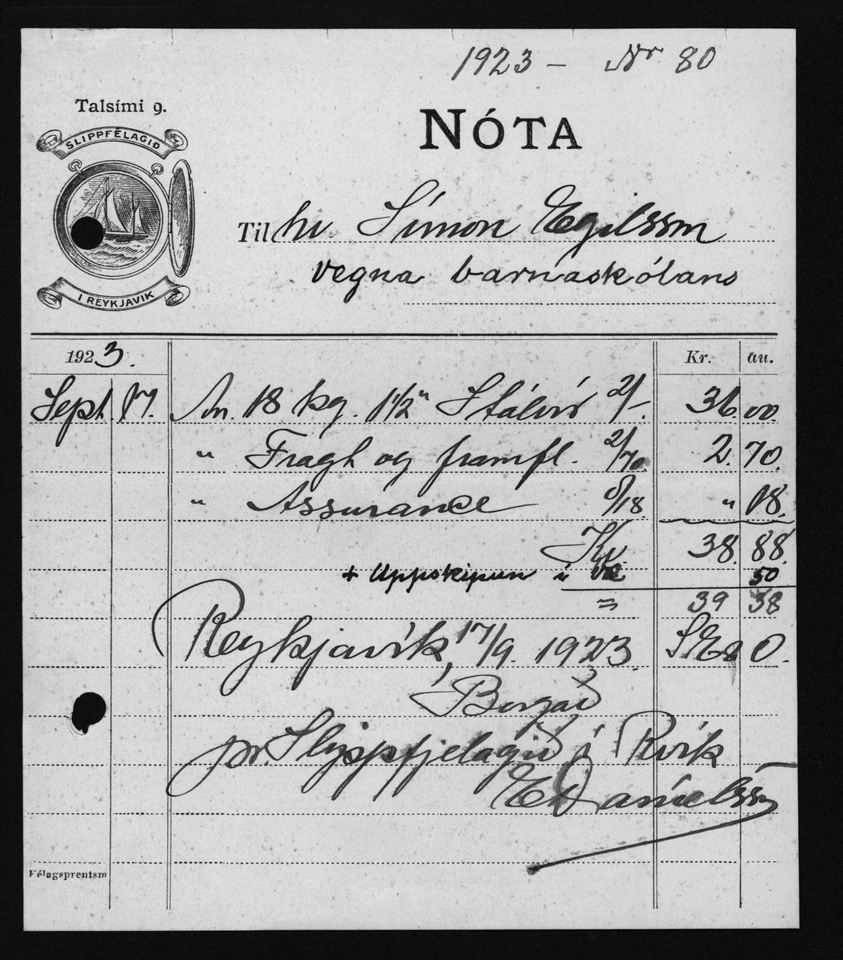 1923 – Nr 80
Talsími 9.
SLIPPFÉLAGIÐ
Í REYKJAVIK
NÓTA
Til hr. Símon Egilsson
vegna barnaskólans
1923. Kr. au.
Sept. 17. An. 18 kg. 1 1/2" Stálvír 2/-. 36.00.
" Fragt og framfl. 2/70. 2.70.
" Assurance 0/18 " 18.
Kr 38.88.
+ Uppskipun í Ve 50
= 39 38
Reykjavík, 17/9. 1923. S.E. & O.
Borgað
pr Slyppfjelagið í Rvík
E Daníelsson
Félagsprentsm